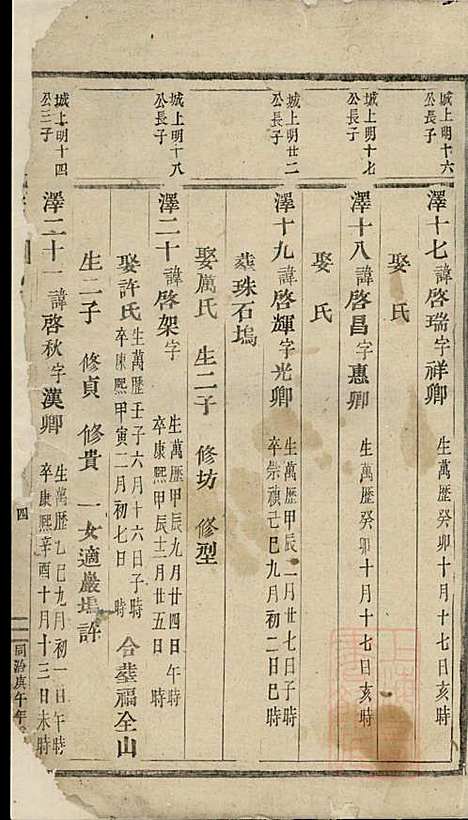 城上明十六
公長子
澤十七諱啓瑞字祥卿 生萬歷癸卯十月十七日亥時
娶 氏
城上明十七
公長子
澤十八諱啓昌字惠卿 生萬歷癸卯十月十七日亥時
娶 氏
城上明廿二
公長子
澤十九諱啓輝字光卿 生萬歷甲辰二月廿七日子時
卒崇禎己巳九月初二日巳時
葬珠石塢
娶厲氏 生二子 修坊 修型
城上明十八
公長子
澤二十諱啓架字 生萬歷甲辰九月廿四日午時
卒康熙甲辰十二月廿五日 時
娶許氏 生萬歷壬子六月十六日子時
卒康熙甲寅二月初七日 時 合葬福全山
生二子 修貞 修貴 一女適巖塢許
城上明十四
公三子
澤二十一諱啓秋字漢卿 生萬歷乙巳九月初一日午時
卒康熙辛酉十月十三日未時
四
同治庚午年